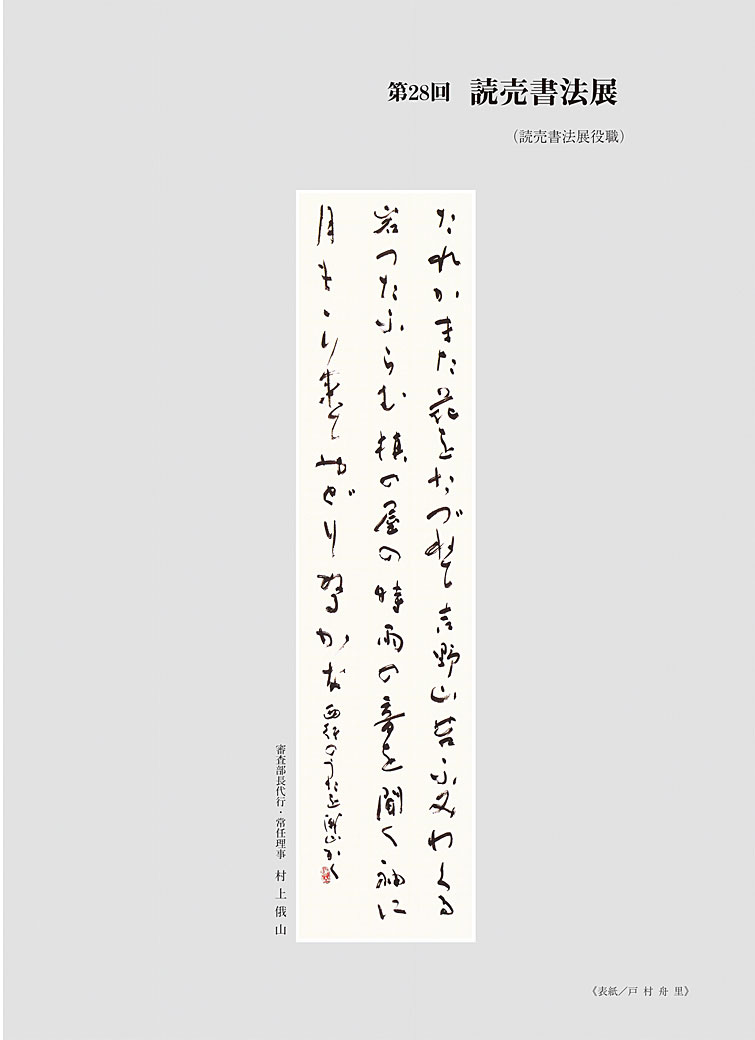 第28回 読売書法展
（読売書法展役職）
たれかまた花をたづねて吉野山苔ふみわくる
岩つたふらむ槙の屋の時雨の音を聞く袖に
月もゝり来てやどりぬるかな 西行のうたを 俄山かく
審査部長代行・常任理事 村上俄山
《表紙／戸村舟里》